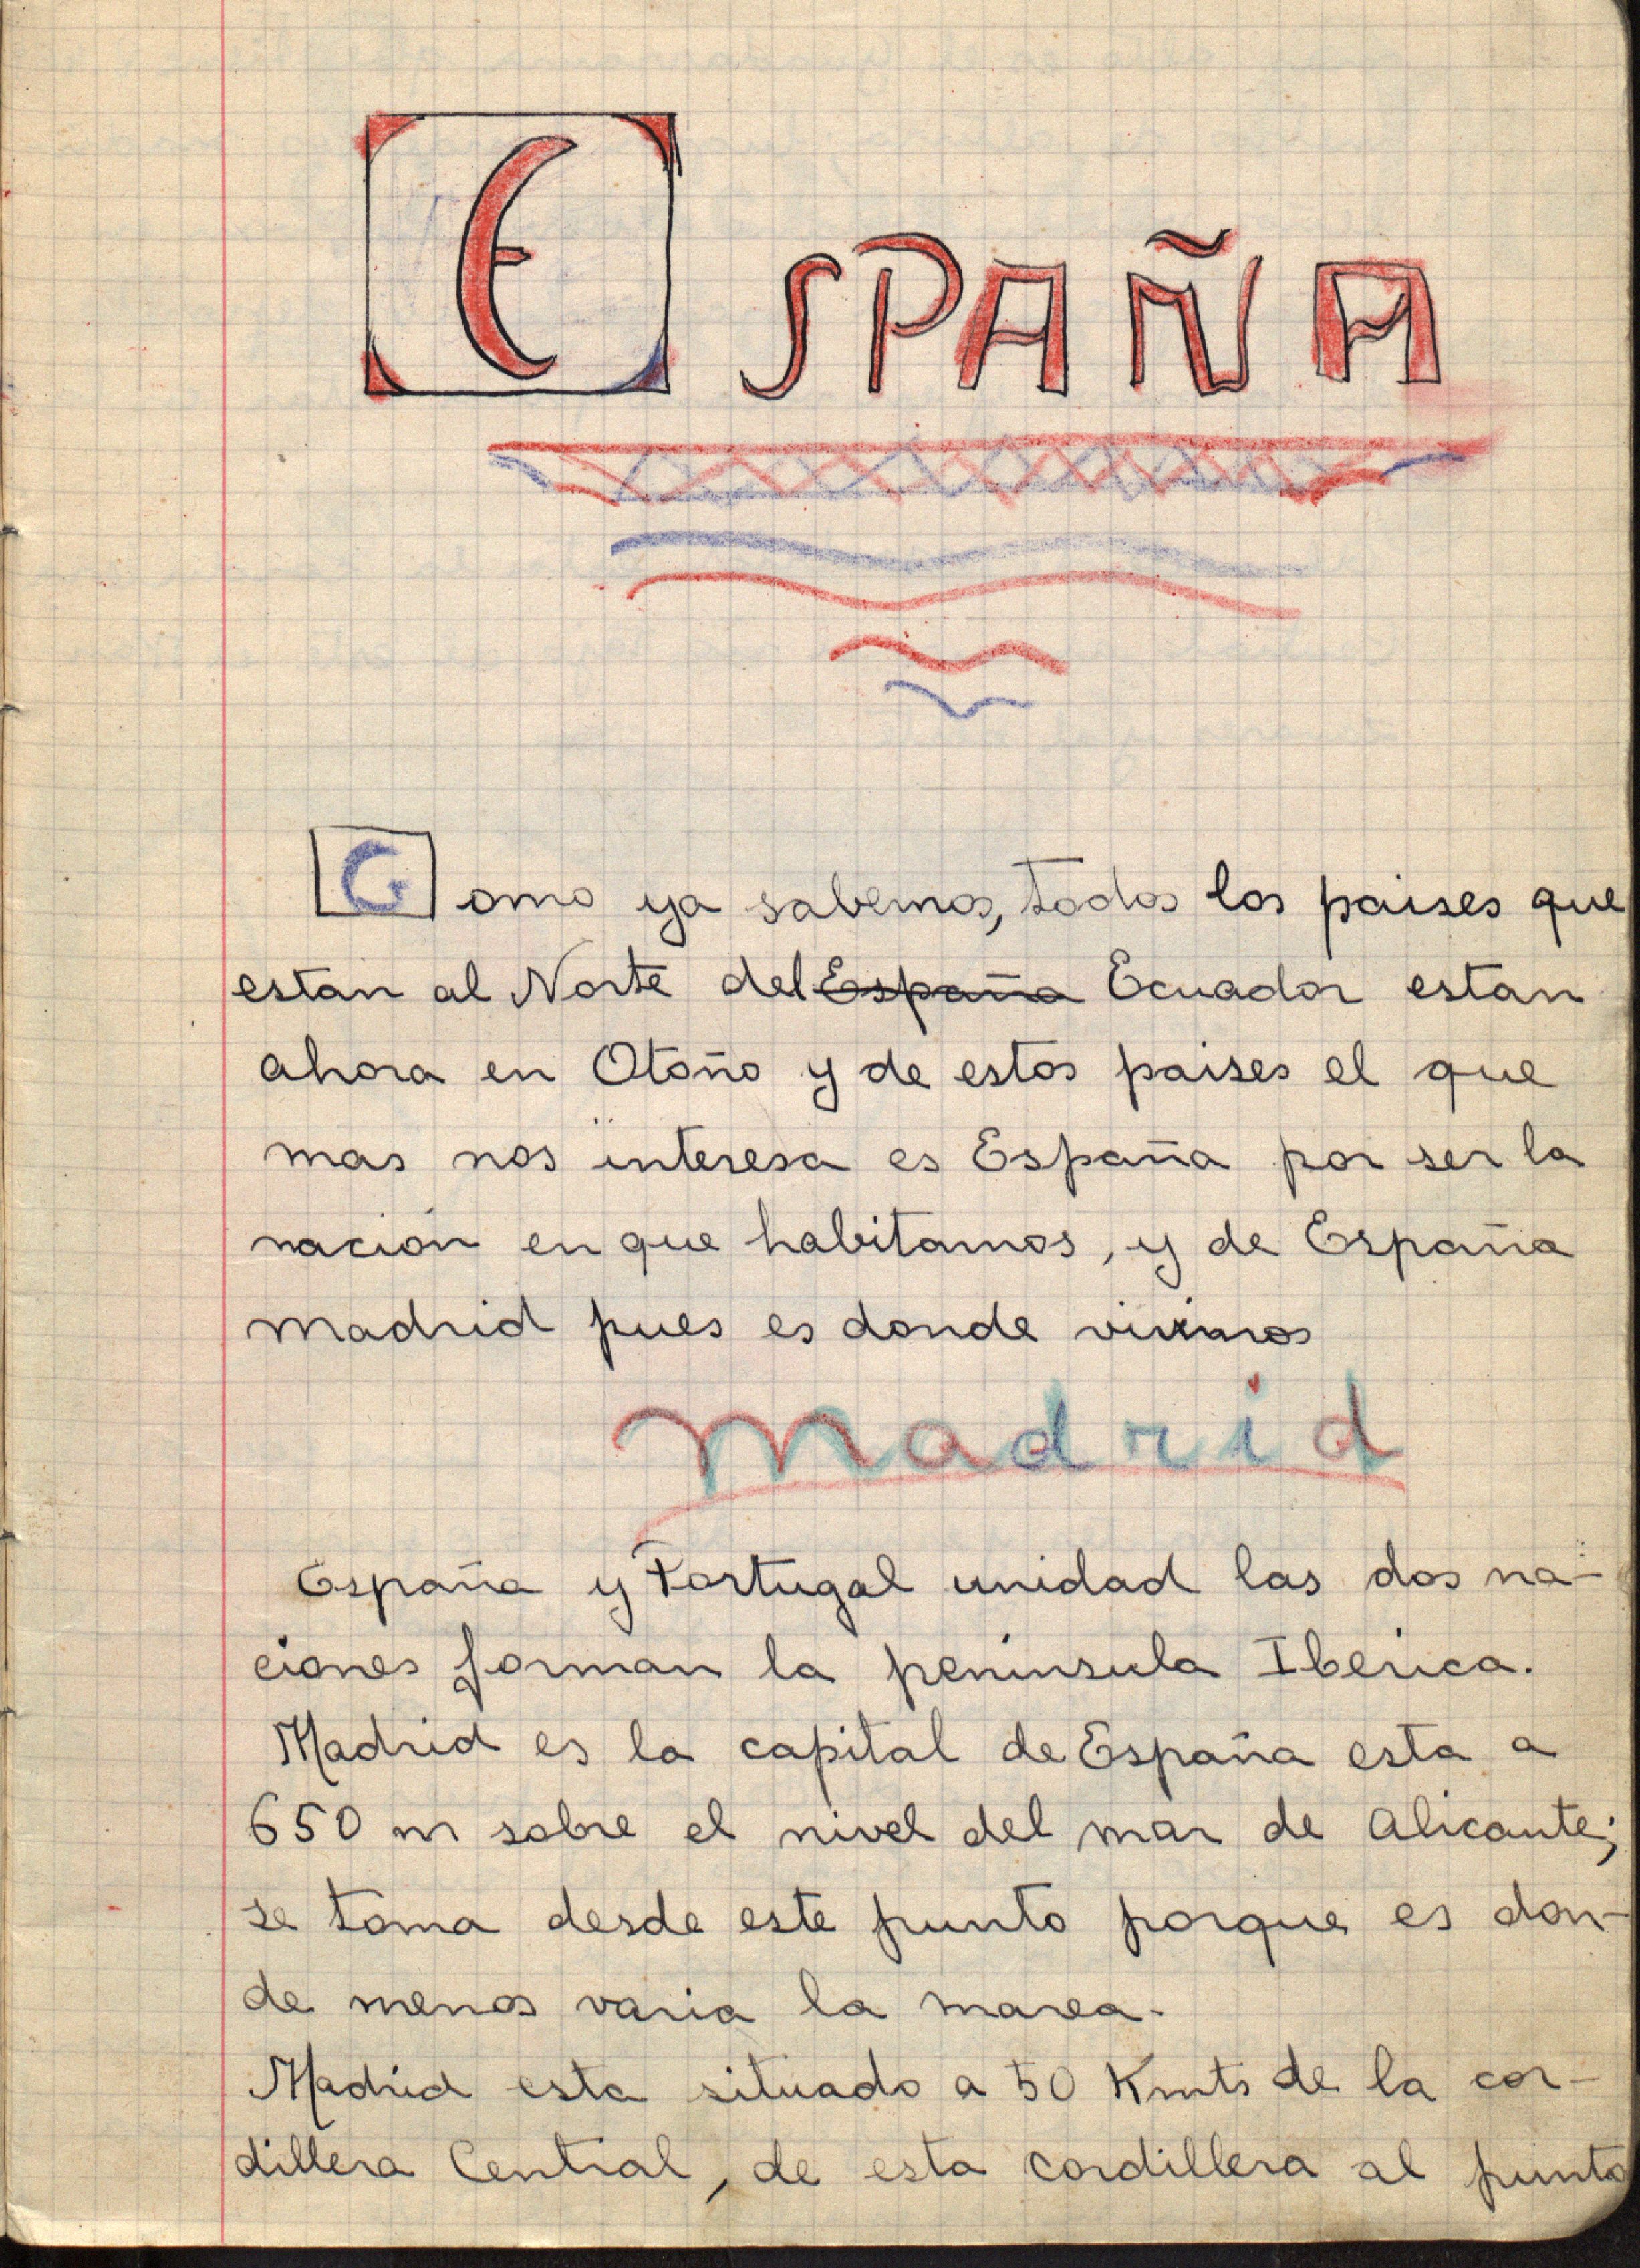 ESPAÑA
Como ya sabemos, todos los paises que
estan al Norte del España Ecuador estan
ahora en Otoño y de estos paises el que
mas nos interesa es España por ser la
nación en que habitamos, y de España
Madrid pues es donde vivimos
Madrid
España y Portugal unidad las dos na-
ciones forman la peninsula Iberica.
Madrid es la capital de España esta a
650 m sobre el nivel del mar de Alicante;
se toma desde este punto porque es don-
de menos varia la marea.
Madrid esta situado a 50 Kmts de la cor-
dillera Central, de esta cordillera al punto